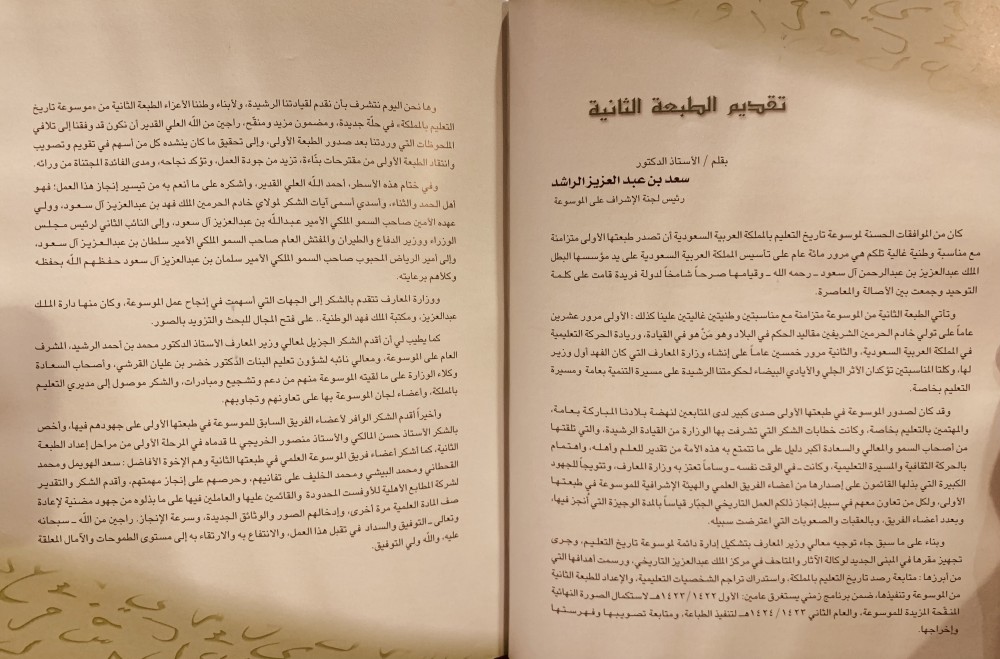 تقديم الطبعة الثانية
بقلم / الأستاذ الدكتور
سعد بن عبد العزيز الراشد
رئيس لجنة الإشراف على الموسوعة
كان من الموافقات الحسنة لموسوعة تاريخ التعليم بالمملكة العربية السعودية أن تصدر طبعتها الأولى متزامنة
مع مناسبة وطنية غالية تلكم هي مرور مائة عام على تأسيس المملكة العربية السعودية على يد مؤسسها البطل
الملك عبدالعزيز بن عبدالرحمن آل سعود ـ رحمه الله ـ وقيامها صرحاً شامخاً لدولة فريدة قامت على كلمة
التوحيد وجمعت بين الأصالة والمعاصرة.
وتأتي الطبعة الثانية من الموسوعة متزامنة مع مناسبتين وطنيتين غاليتين علينا كذلك : الأولى مرور عشرين
عاماً على تولي خادم الحرمين الشريفين مقاليد الحكم في البلاد وهو مَنْ هو في القيادة، وريادة الحركة التعليمية
في المملكة العربية السعودية، والثانية مرور خمسين عاماً على إنشاء وزارة المعارف التي كان الفهد أول وزير
لها، وكلتا المناسبتين تؤكدان الأثر الجلي والأيادي البيضاء لحكومتنا الرشيدة على مسيرة التنمية بعامة ومسيرة
التعليم بخاصة.
وقد كان لصدور الموسوعة في طبعتها الأولى صدى كبير لدى المتابعين لنهضة بلادنا المباركة بعامة،
والمهتمين بالتعليم بخاصة، وكانت خطابات الشكر التي تشرفت بها الوزارة من القيادة الرشيدة، والتي تلقتها
من أصحاب السمو والمعالي والسعادة أكبر دليل على ما تتمتع به هذه الأمة من تقدير للعلم وأهله، واهتمام
بالحركة الثقافية والمسيرة التعليمية، وكانت ـ في الوقت نفسه ـ وساماً تعتز به وزارة المعارف، وتتويجاً للجهود
الكبيرة التي بذلها القائمون على إصدارها من أعضاء الفريق العلمي والهيئة الإشرافية للموسوعة في طبعتها
الأولى، ولكل من تعاون معهم في سبيل إنجاز ذلكم العمل التاريخي الجبّار قياساً بالمدة الوجيزة التي أُنجز فيها،
وبعدد أعضاء الفريق، وبالعقبات والصعوبات التي اعترضت سبيله.
وبناء على ما سبق جاء توجيه معالي وزير المعارف بتشكيل إدارة دائمة لموسوعة تاريخ التعليم، وجرى
تجهيز مقرها في المبنى الجديد لوكالة الآثار والمتاحف في مركز الملك عبدالعزيز التاريخي، ورسمت أهدافها التي
من أبرزها : متابعة رصد تاريخ التعليم بالمملكة، واستدراك تراجم الشخصيات التعليمية، والإعداد للطبعة الثانية
من الموسوعة وتنفيذها، ضمن برنامج زمني يستغرق عامين: الأول ١٤٢٢/ ١٤٢٣هـ لاستكمال الصورة النهائية
المنقّحة المزيدة للموسوعة، والعام الثاني ١٤٢٣/ ١٤٢٤هـ لتنفيذ الطباعة، ومتابعة تصويبها وفهرستها
وإخراجها.
وها نحن اليوم نتشرف بأن نقدم لقيادتنا الرشيدة، ولأبناء وطننا الأعزاء الطبعة الثانية من «موسوعة تاريخ
التعليم بالمملكة» في حلّة جديدة، ومضمون مزيد ومنقّح، راجين من اللّه العلي القدير أن نكون قد وفقنا إلى تلافي
الملحوظات التي وردتنا بعد صدور الطبعة الأولى، وإلى تحقيق ما كان ينشده كل من أسهم في تقويم وتصويب
وانتقاد الطبعة الأولى من مقترحات بنّاءة، تزيد من جودة العمل، وتؤكد نجاحه، ومدى الفائدة المجتناة من ورائه.
وفي ختام هذه الأسطر، أحمد اللّه العلي القدير، وأشكره على ما أنعم به من تيسير إنجاز هذا العمل؛ فهو
أهل الحمد والثناء، وأسدي أسمى آيات الشكر لمولاي خادم الحرمين الملك فهد بن عبدالعزيز آل سعود، وولي
عهده الأمين صاحب السمو الملكي الأمير عبداللّه بن عبدالعزيز آل سعود، وإلى النائب الثاني لرئيس مجلس
الوزراء ووزير الدفاع والطيران والمفتش العام صاحب السمو الملكي الأمير سلطان بن عبدالعزيز آل سعود،
وإلى أمير الرياض المحبوب صاحب السمو الملكي الأمير سلمان بن عبدالعزيز آل سعود حفظهم اللّه بحفظه
وكلأهم برعايته.
ووزارة المعارف تتقدم بالشكر إلى الجهات التي أسهمت في إنجاح عمل الموسوعة، وكان منها دارة الملك
عبدالعزيز، ومكتبة الملك فهد الوطنية.. على فتح المجال للبحث والتزويد بالصور.
كما يطيب لي أن أقدم الشكر الجزيل لمعالي وزير المعارف الأستاذ الدكتور محمد بن أحمد الرشيد، المشرف
العام على الموسوعة، ومعالي نائبه لشؤون تعليم البنات الدّكتور خضر بن عليان القرشي، وأصحاب السعادة
وكلاء الوزارة على ما لقيته الموسوعة منهم من دعم وتشجيع ومبادرات، والشكر موصول إلى مديري التعليم
بالمملكة، وأعضاء لجان الموسوعة بها على تعاونهم وتجاوبهم.
وأخيراً أقدم الشكر الوافر لأعضاء الفريق السابق للموسوعة في طبعتها الأولى على جهودهم فيها، وأخص
بالشكر الأستاذ حسن المالكي والأستاذ منصور الخريجي لما قدماه في المرحلة الأولى من مراحل إعداد الطبعة
الثانية، كما أشكر أعضاء فريق الموسوعة العلمي في طبعتها الثانية وهم الإخوة الأفاضل : سعد الهويمل ومحمد
القحطاني ومحمد البيشي ومحمد الخليف على تفانيهم، وحرصهم على إنجاز مهمتهم، وأقدم الشكر والتقدير
لشركة المطابع الأهلية للأوفست المحدودة والقائمين عليها والعاملين فيها على ما بذلوه من جهود مضنية لإعادة
صف المادة العلمية مرة أخرى، وإدخالهم الصور والوثائق الجديدة، وسرعة الإنجاز. راجين من اللّه ـ سبحانه
وتعالى ـ التوفيق والسداد في تقبل هذا العمل، والانتفاع به والارتقاء به إلى مستوى الطموحات والآمال المعلقة
عليه. واللّه ولي التوفيق.